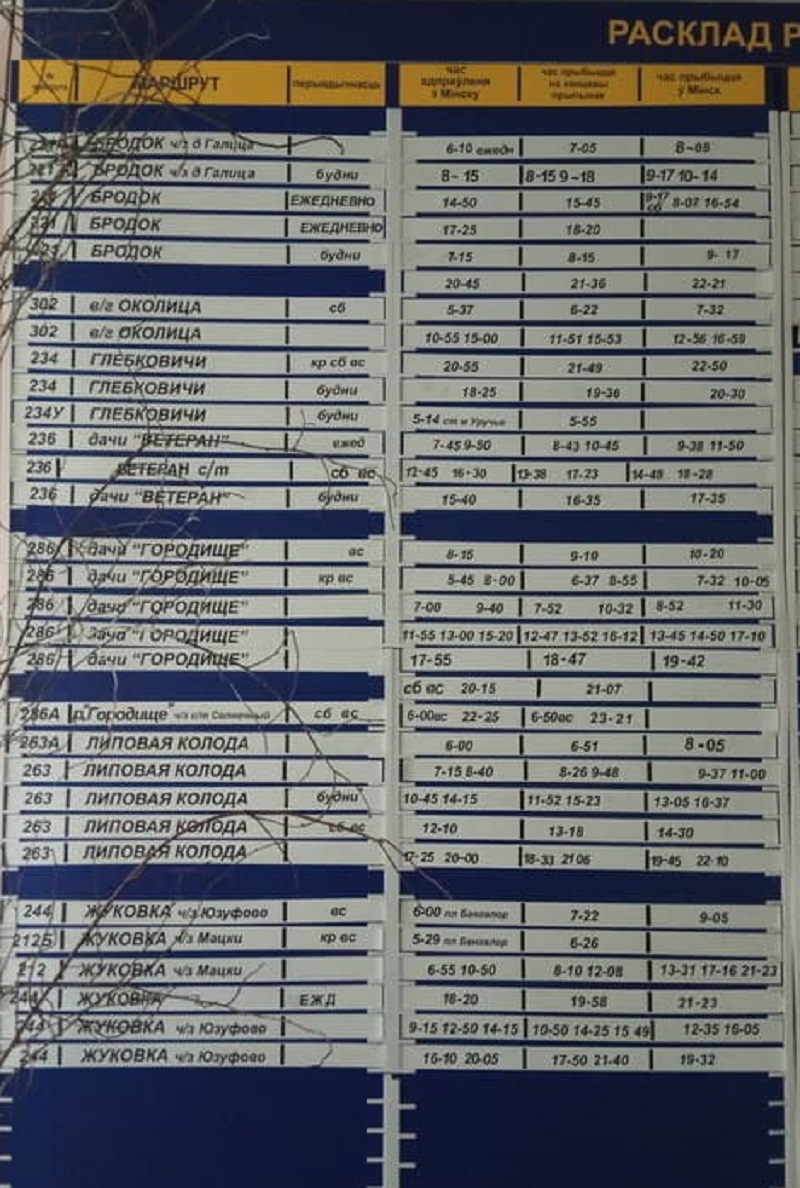 РАСКЛАД Р
№ МАРШРУТ перыядычнасць час адпраўлення з Мінску час прыбыцця на канцавы прыпынак час прыбыцця ў Мінск
БРОДОК ч/з д Галица 6-10 ежедн 7-05 8-05
БРОДОК ч/з д Галица будни 8-15 8-15 9-18 9-17 10-14
БРОДОК ЕЖЕДНЕВНО 14-50 15-45 9-17 сб 8-07 16-54
БРОДОК ЕЖЕДНЕВНО 17-25 18-20
БРОДОК будни 7-15 8-15 9-17
20-45 21-36 22-21
302 в/г ОКОЛИЦА сб 5-37 6-22 7-32
302 в/г ОКОЛИЦА 10-55 15-00 11-51 15-53 12-56 16-59
234 ГЛЕБКОВИЧИ кр сб вс 20-55 21-49 22-50
234 ГЛЕБКОВИЧИ будни 18-25 19-36 20-30
234У ГЛЕБКОВИЧИ будни 5-14 ст м Уручье 5-55
236 дачи "ВЕТЕРАН" ежед 7-45 9-50 8-43 10-45 9-38 11-50
236 ВЕТЕРАН с/т сб вс 12-45 16-30 13-38 17-23 14-48 18-28
236 дачи "ВЕТЕРАН" будни 15-40 16-35 17-35
286 дачи "ГОРОДИЩЕ" вс 8-15 9-10 10-20
286 дачи "ГОРОДИЩЕ" кр вс 5-45 8-00 6-37 8-55 7-32 10-05
286 дачи "ГОРОДИЩЕ" 7-00 9-40 7-52 10-32 8-52 11-30
286 дача "ГОРОДИЩЕ" 11-55 13-00 15-20 12-47 13-52 16-12 13-45 14-50 17-10
286 дачи "ГОРОДИЩЕ" 17-55 18-47 19-42
сб вс 20-15 21-07
286А д."Городище" ч/з с/т Солнечный сб вс 6-00вс 22-25 6-50вс 23-21
263А ЛИПОВАЯ КОЛОДА 6-00 6-51 8-05
263 ЛИПОВАЯ КОЛОДА 7-15 8-40 8-26 9-48 9-37 11-00
263 ЛИПОВАЯ КОЛОДА будни 10-45 14-15 11-52 15-23 13-05 16-37
263 ЛИПОВАЯ КОЛОДА сб вс 12-10 13-18 14-30
263 ЛИПОВАЯ КОЛОДА 17-25 20-00 18-33 21 06 19-45 22-10
244 ЖУКОВКА ч/з Юзуфово вс 6-00 пл Бангалор 7-22 9-05
212Б ЖУКОВКА ч/з Мацки кр вс 5-29 пл Бангалор 6-26
212 ЖУКОВКА ч/з Мацки 6-55 10-50 8-10 12-08 13-31 17-16 21-23
244 ЖУКОВКА ЕЖД 18-20 19-58 21-23
244 ЖУКОВКА ч/з Юзуфово 9-15 12-50 14-15 10-50 14-25 15 49 12-35 16-05
244 ЖУКОВКА ч/з Юзуфово 16-10 20-05 17-50 21-40 19-32